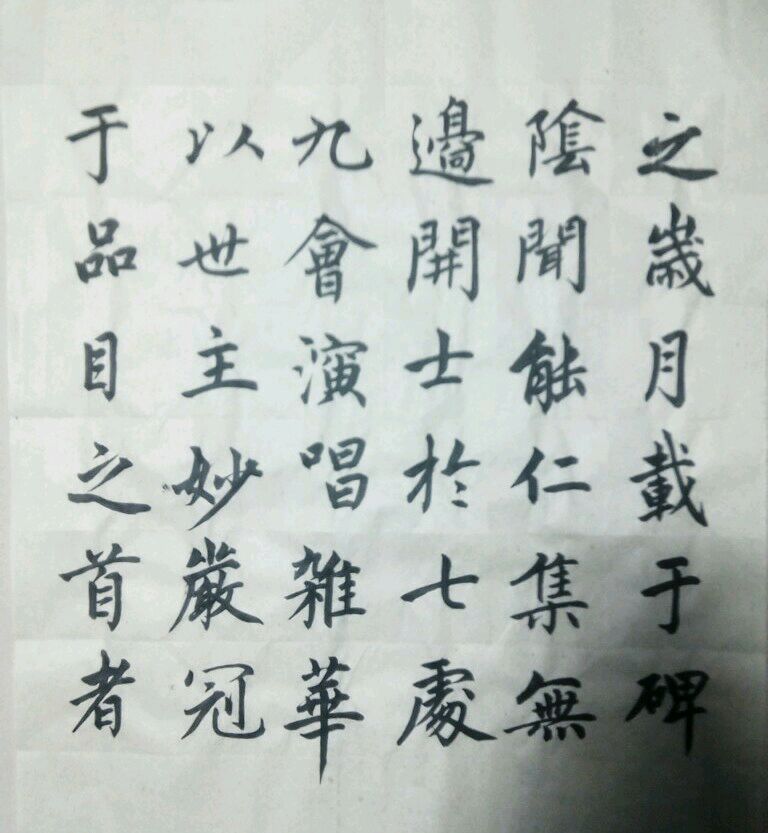 之歲月載于碑
陰聞能仁集無
邊開士於七處
九會演唱雑華
以世主妙嚴冠
于品目之首者